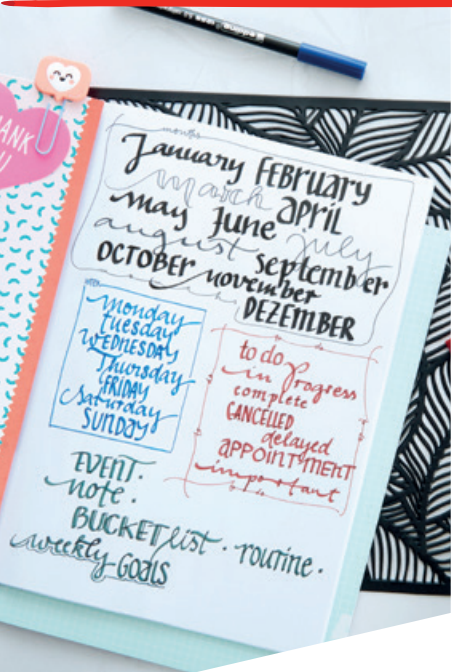 THANK
U
months
January FEBRUARY
march APRIL
may June july
august September
OCTOBER november
DEZEMBER
week
monday
TUESDAY
WEDNESDAY
Thursday
FRIDAY
Saturday
SUNDAY
to do
in Progress
complete
CANCELLED
delayed
APPOINTMENT
important
EVENT.
note.
BUCKET list. routine.
weekly GOALS